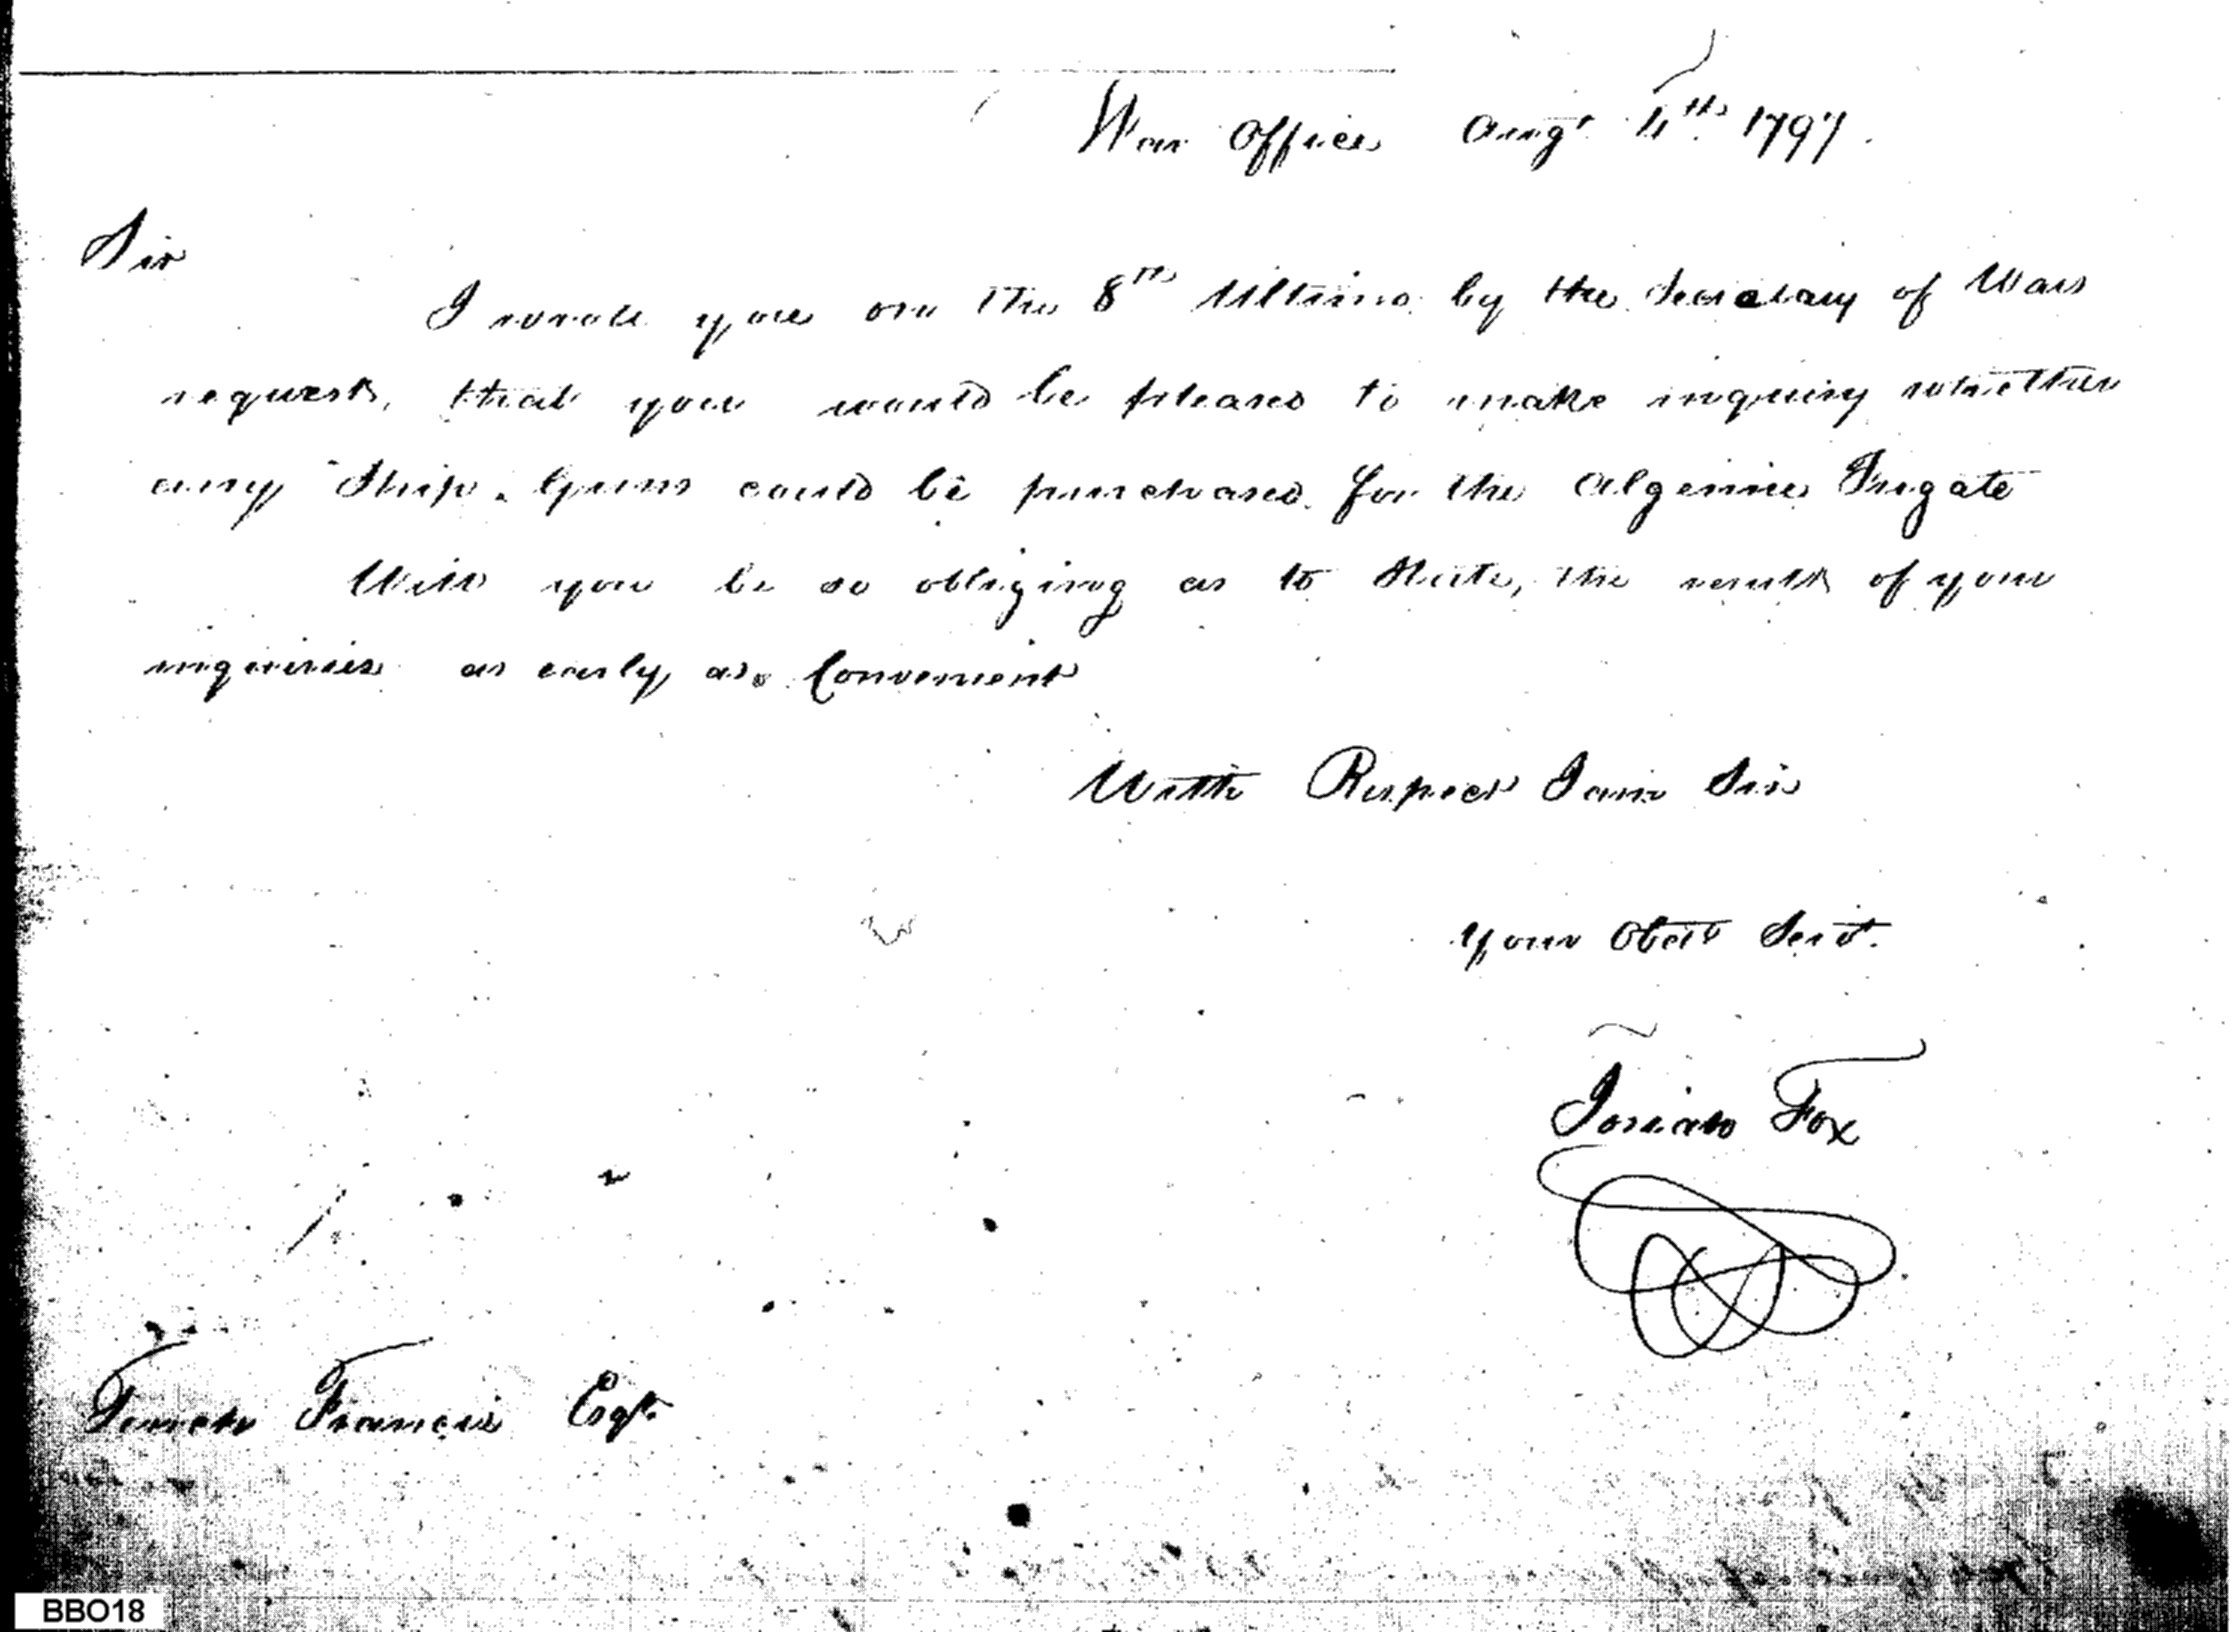 War Office Augt 4th 1797.
Sir
I wrote you on the 8th Ultimo by the Secretary of Wars
request, that you would be pleased to make inquiry whether
any Ship Guns could be purchased for the Algerine Frigate
Will you be so obliging as to State, the result of your
inquiries as early as Convenient
With Respect I am Sir
Your Obedt Servt.
Josiah Fox
Tench Francis Esqr.
BBO18